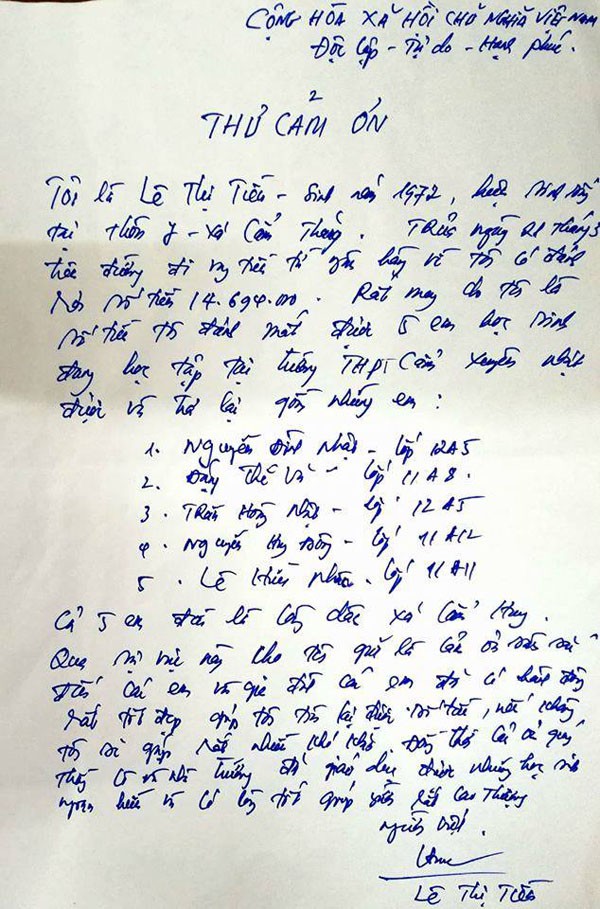 CỘNG HÒA XÃ HỘI CHỦ NGHĨA VIỆT NAM
Độc lập - Tự do - Hạnh phúc.
THƯ CẢM ƠN
Tôi là Lê Thị Tiến - Sinh năm 1972, hiện sinh sống
tại thôn 7 - xã Cẩm Thăng. Trưa ngày 21 tháng 3
trên đường đi tiền từ ngân hàng về tôi có đánh
rơi số tiền 14.694.000. Rất may cho tôi là
số tiền tôi đánh mất được 5 em học sinh
đang học tập tại trường THPT Cẩm Xuyên nhặt
được và trả lại gồm những em:
1. Nguyễn Đình Nhật - lớp 12A5
2. Đặng Thế Vĩ - lớp 11A8.
3. Trần Hoàng - lớp 12A5
4. Nguyễn Huy Đông - lớp 11A12
5. Lê Hiếu - lớp 11A11
Cả 5 em đều là xã Cẩm Hưng.
Qua sự việc này cho tôi gửi lời cảm ơn sâu sắc
đến các em và gia đình các em đã có hành động
rất tốt đẹp giúp tôi tìm lại được số tiền, nếu không
tôi sẽ gặp rất nhiều khó khăn. Đồng thời cảm ơn quý
thầy cô và nhà trường đã giáo dục được những học sinh
ngoan hiền và có lòng tốt giúp rất cao thượng
Người viết.
Lê Thị Tiến